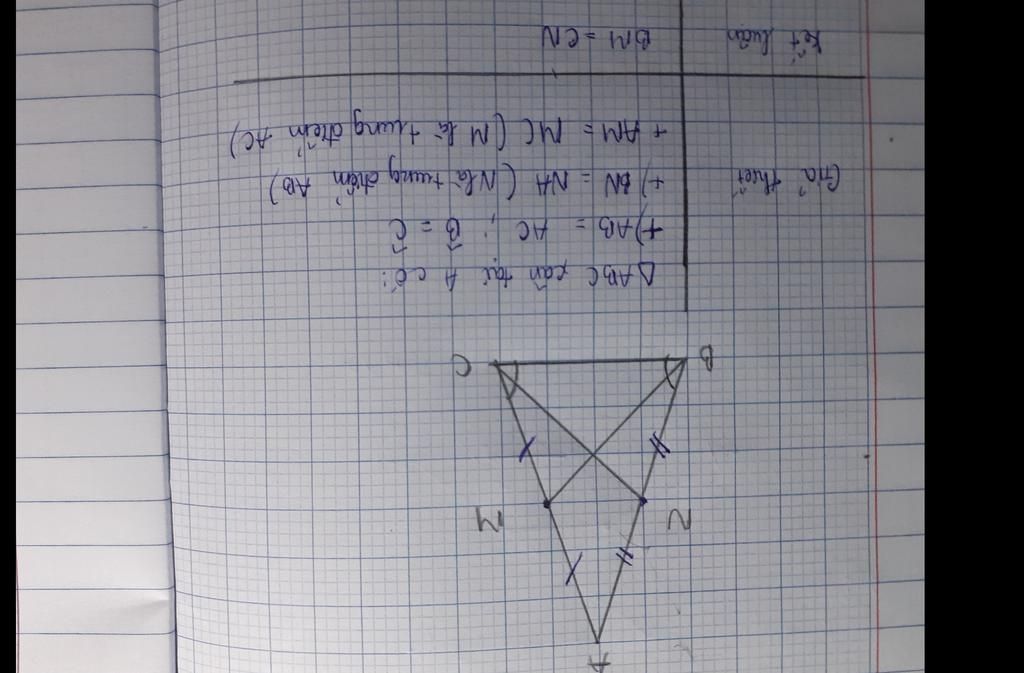 A
N M
B C
Giả thiết
Δ ABC cân tại A có:
+) AB = AC ; B̂ = Ĉ
+) BN = NA (N là trung điểm AB)
+ AM = MC (M là trung điểm AC)
Kết luận BM = CN